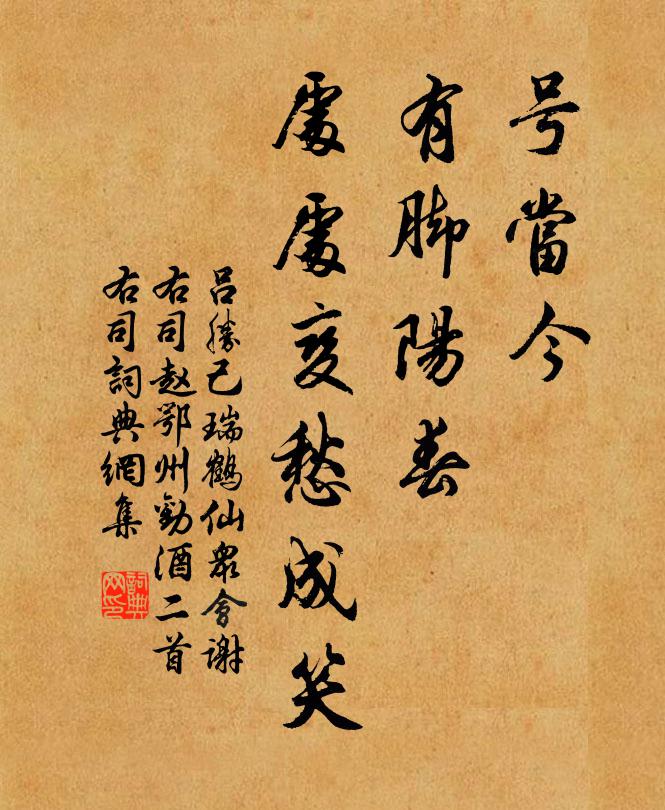 号當今
有脚陽春
處處变愁成笑
呂勝己瑞鶴仙眾會謝
右司赵鄂州勸酒二首
右司詞典網集
詞典
网印